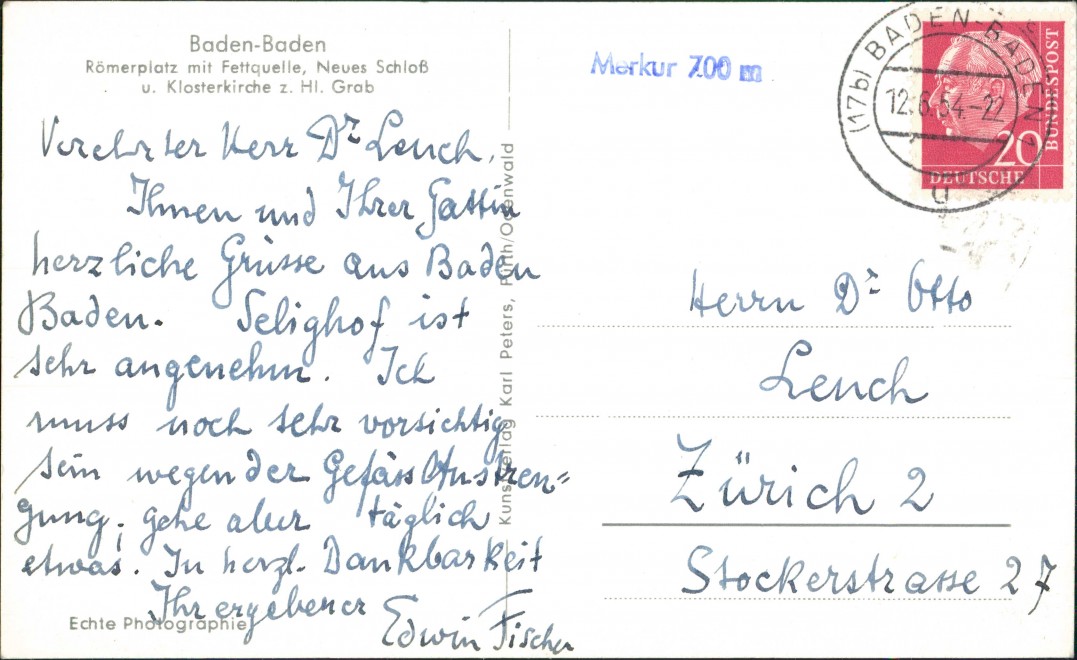 Baden-Baden
Römerplatz mit Fettquelle, Neues Schloß
u. Klosterkirche z. Hl. Grab
Verehrter Herr Dr Lench,
Ihnen und Ihrer Gattin
herzliche Grüsse aus Baden
Baden. Selighof ist
sehr angenehm. Ich
muss noch sehr vorsichtig
sein wegen der Gefäss Anstren=
gung; gehe aber täglich
etwas. In herzl. Dankbarkeit
Ihr ergebener
Edwin Fischer
Echte Photographie
Kunstverlag Karl Peters, Fürth/Odenwald
Merkur 700 m
(17b) BADEN-BADEN 1
12.6.54-22
u
20
DEUTSCHE
BUNDESPOST
Herrn Dr Otto
Lench
Zürich 2
Stockerstrasse 27